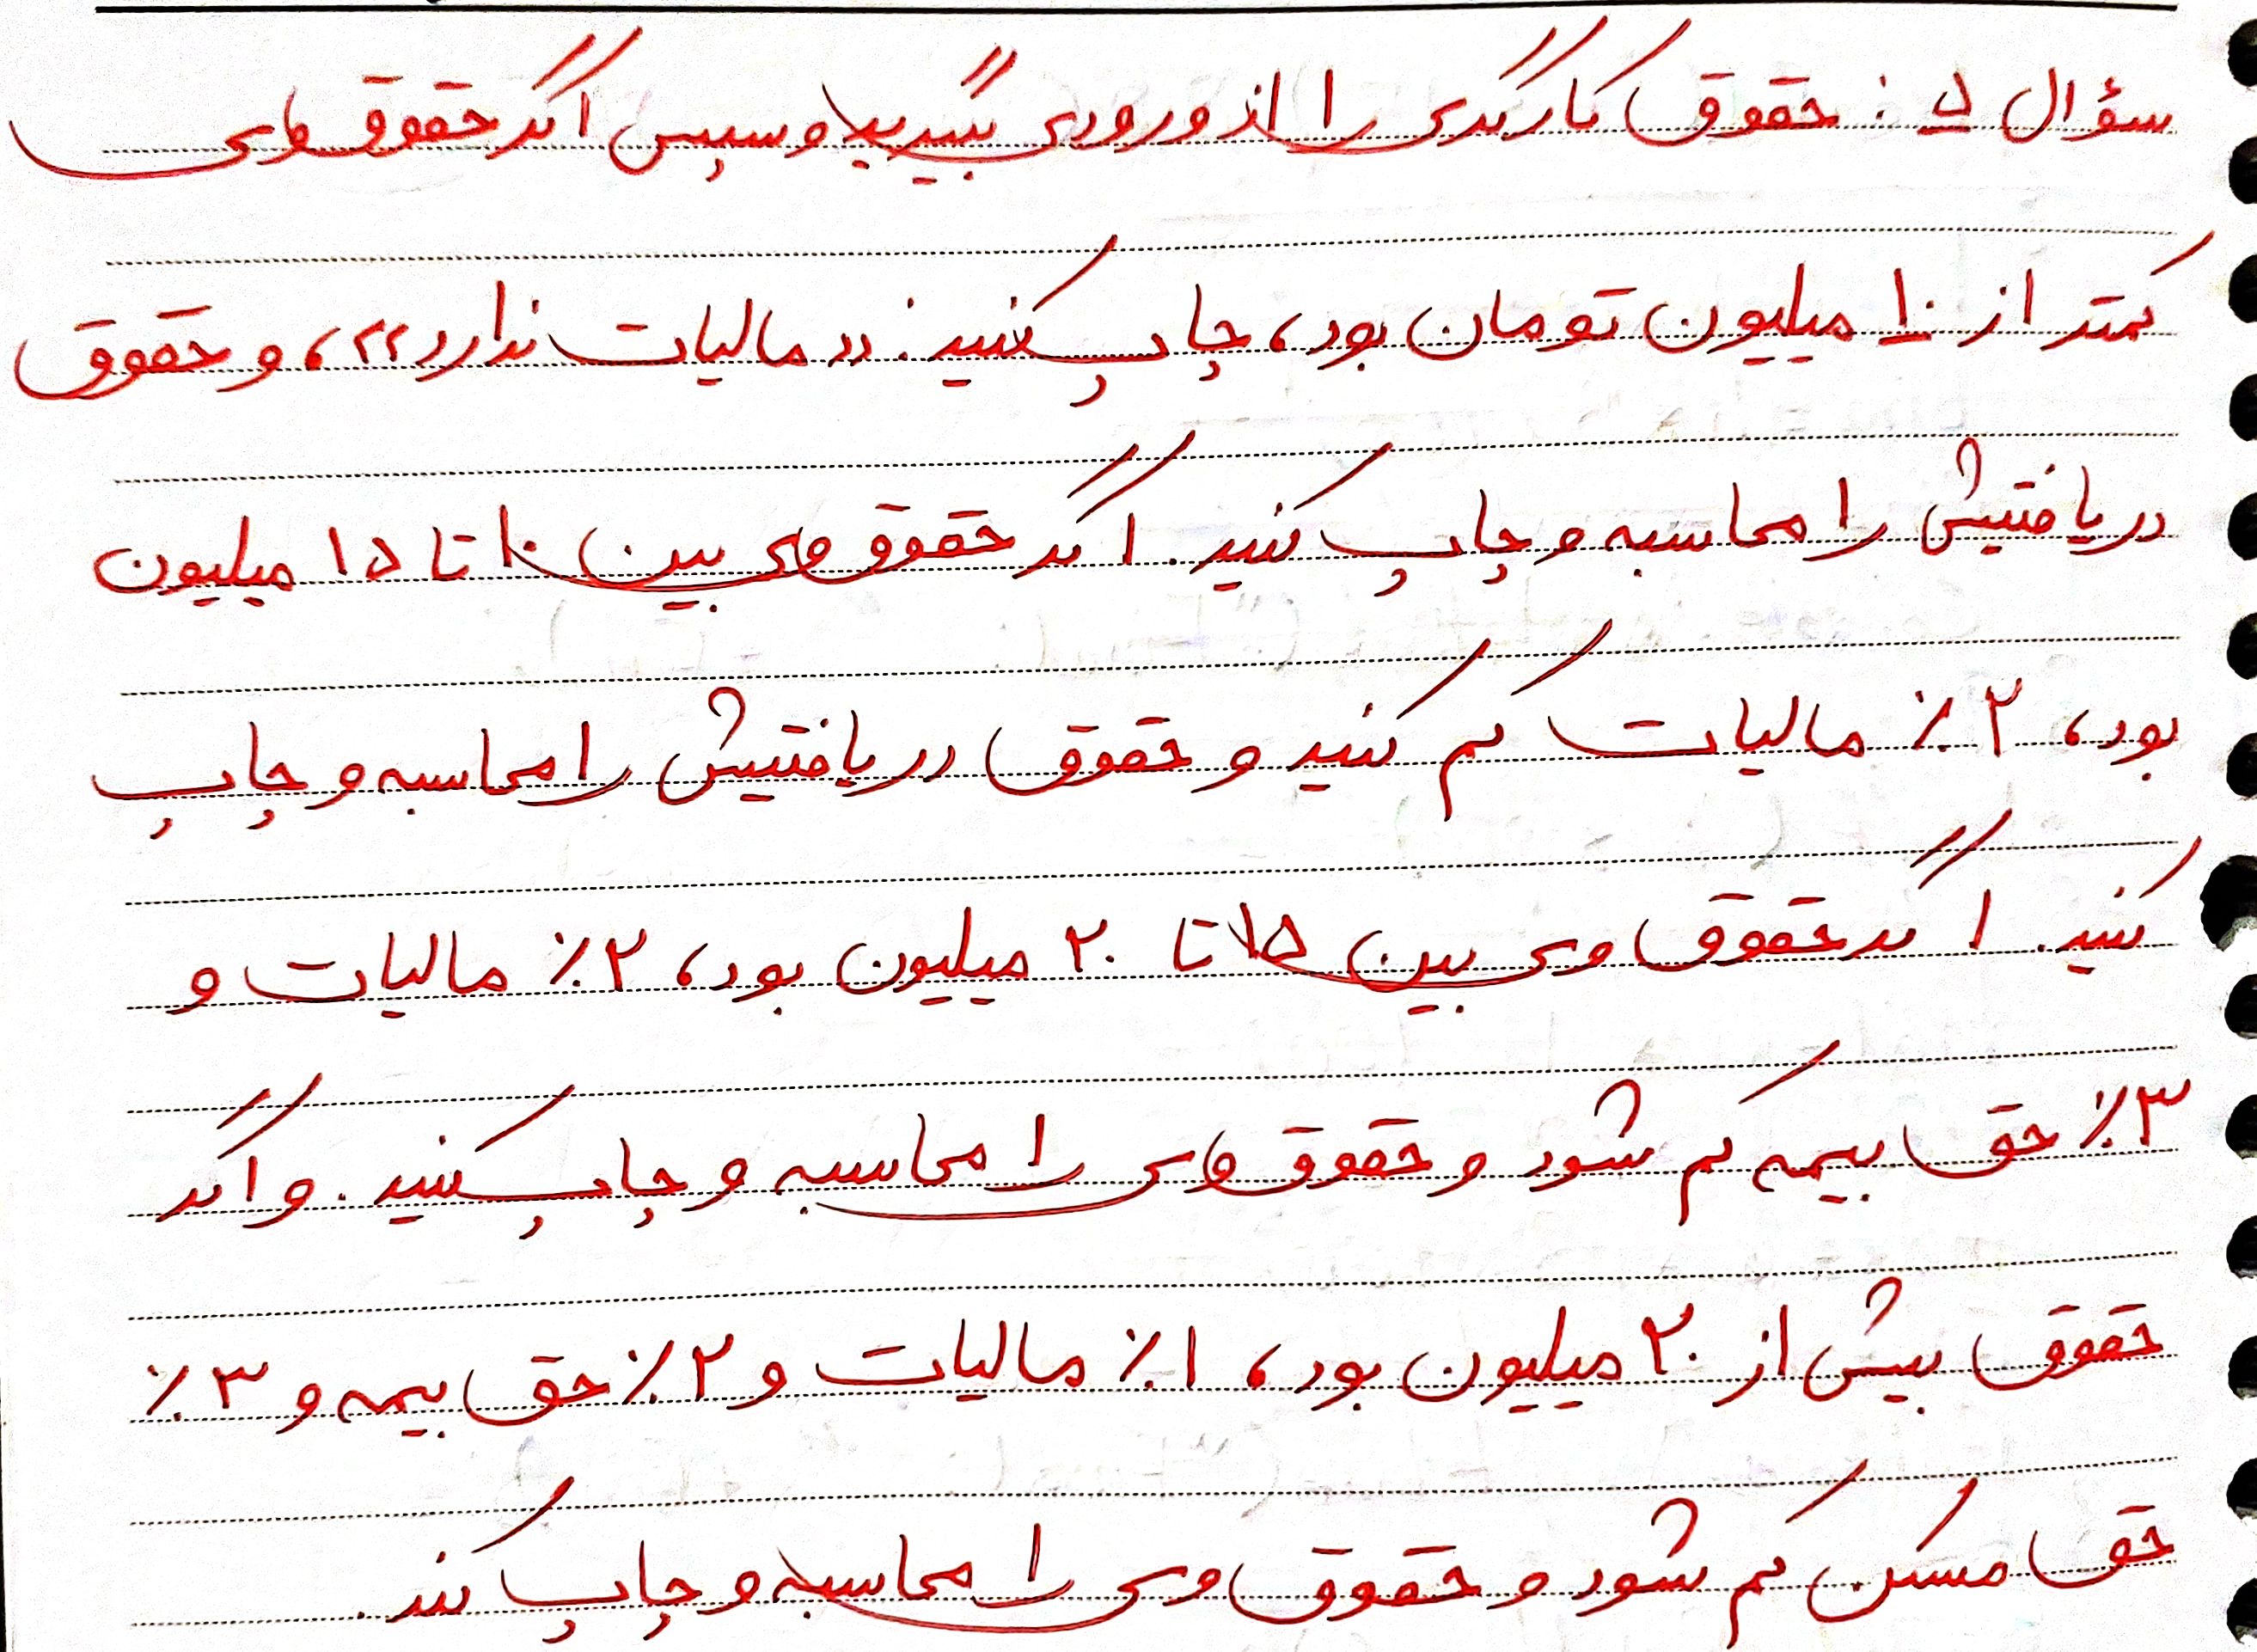 سؤال ۵ : حقوق کارگری را از ورودی بگیرید و سپس اگر حقوق وی
کمتر از ۱۰ میلیون تومان بود، چاپ کنید: «مالیات ندارد»، و حقوق
دریافتیش را محاسبه و چاپ کنید. اگر حقوق وی بین ۱۰ تا ۱۵ میلیون
بود، ۲٪ مالیات کم کنید و حقوق دریافتیش را محاسبه و چاپ
کنید. اگر حقوق وی بین ۱۵ تا ۲۰ میلیون بود، ۲٪ مالیات و
۳٪ حق بیمه کم شود و حقوق وی را محاسبه و چاپ کنید. و اگر
حقوق بیش از ۲۰ میلیون بود، ۱٪ مالیات و ۲٪ حق بیمه و ۳٪
حق مسکن کم شود و حقوق وی را محاسبه و چاپ کند.